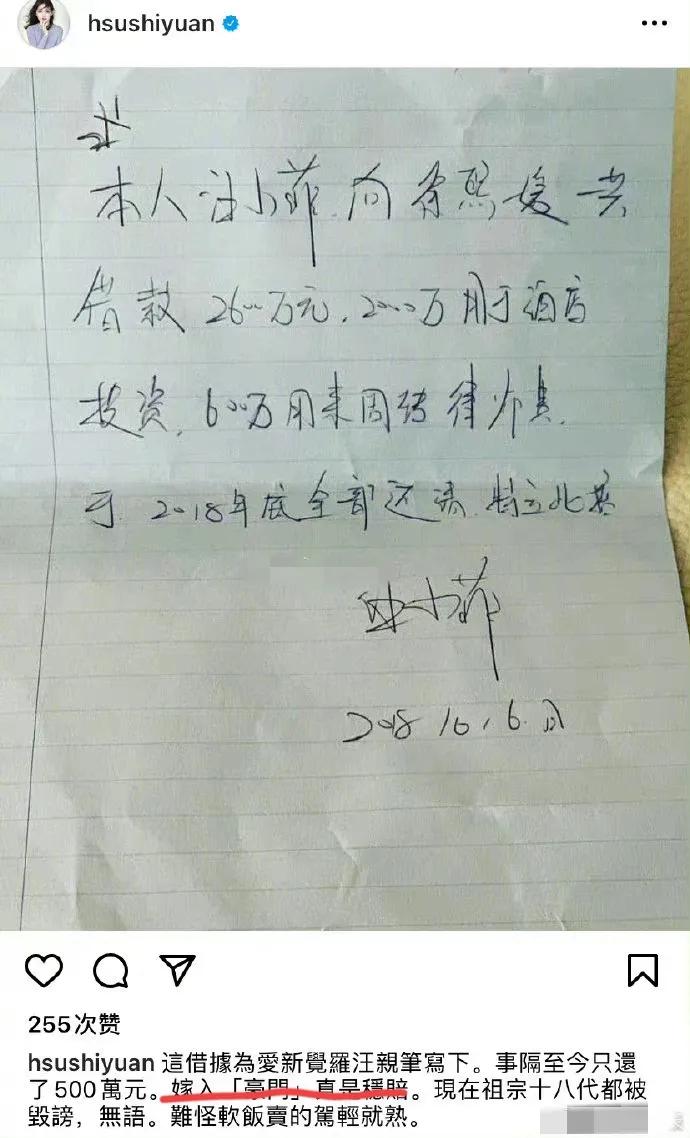 hsushiyuan
本人汪小菲.向徐熙媛共
借款2600万元.2000万用于酒店
投资.600万用来周转律师费.
于.2018年底全部还清.特立此
汪小菲
2018.10.6.
255次赞
hsushiyuan 這借據為愛新覺羅汪親筆寫下。事隔至今只還
了500萬元。嫁入「豪門」真是穩賠。現在祖宗十八代都被
毀謗，無語。難怪軟飯賣的駕輕就熟。